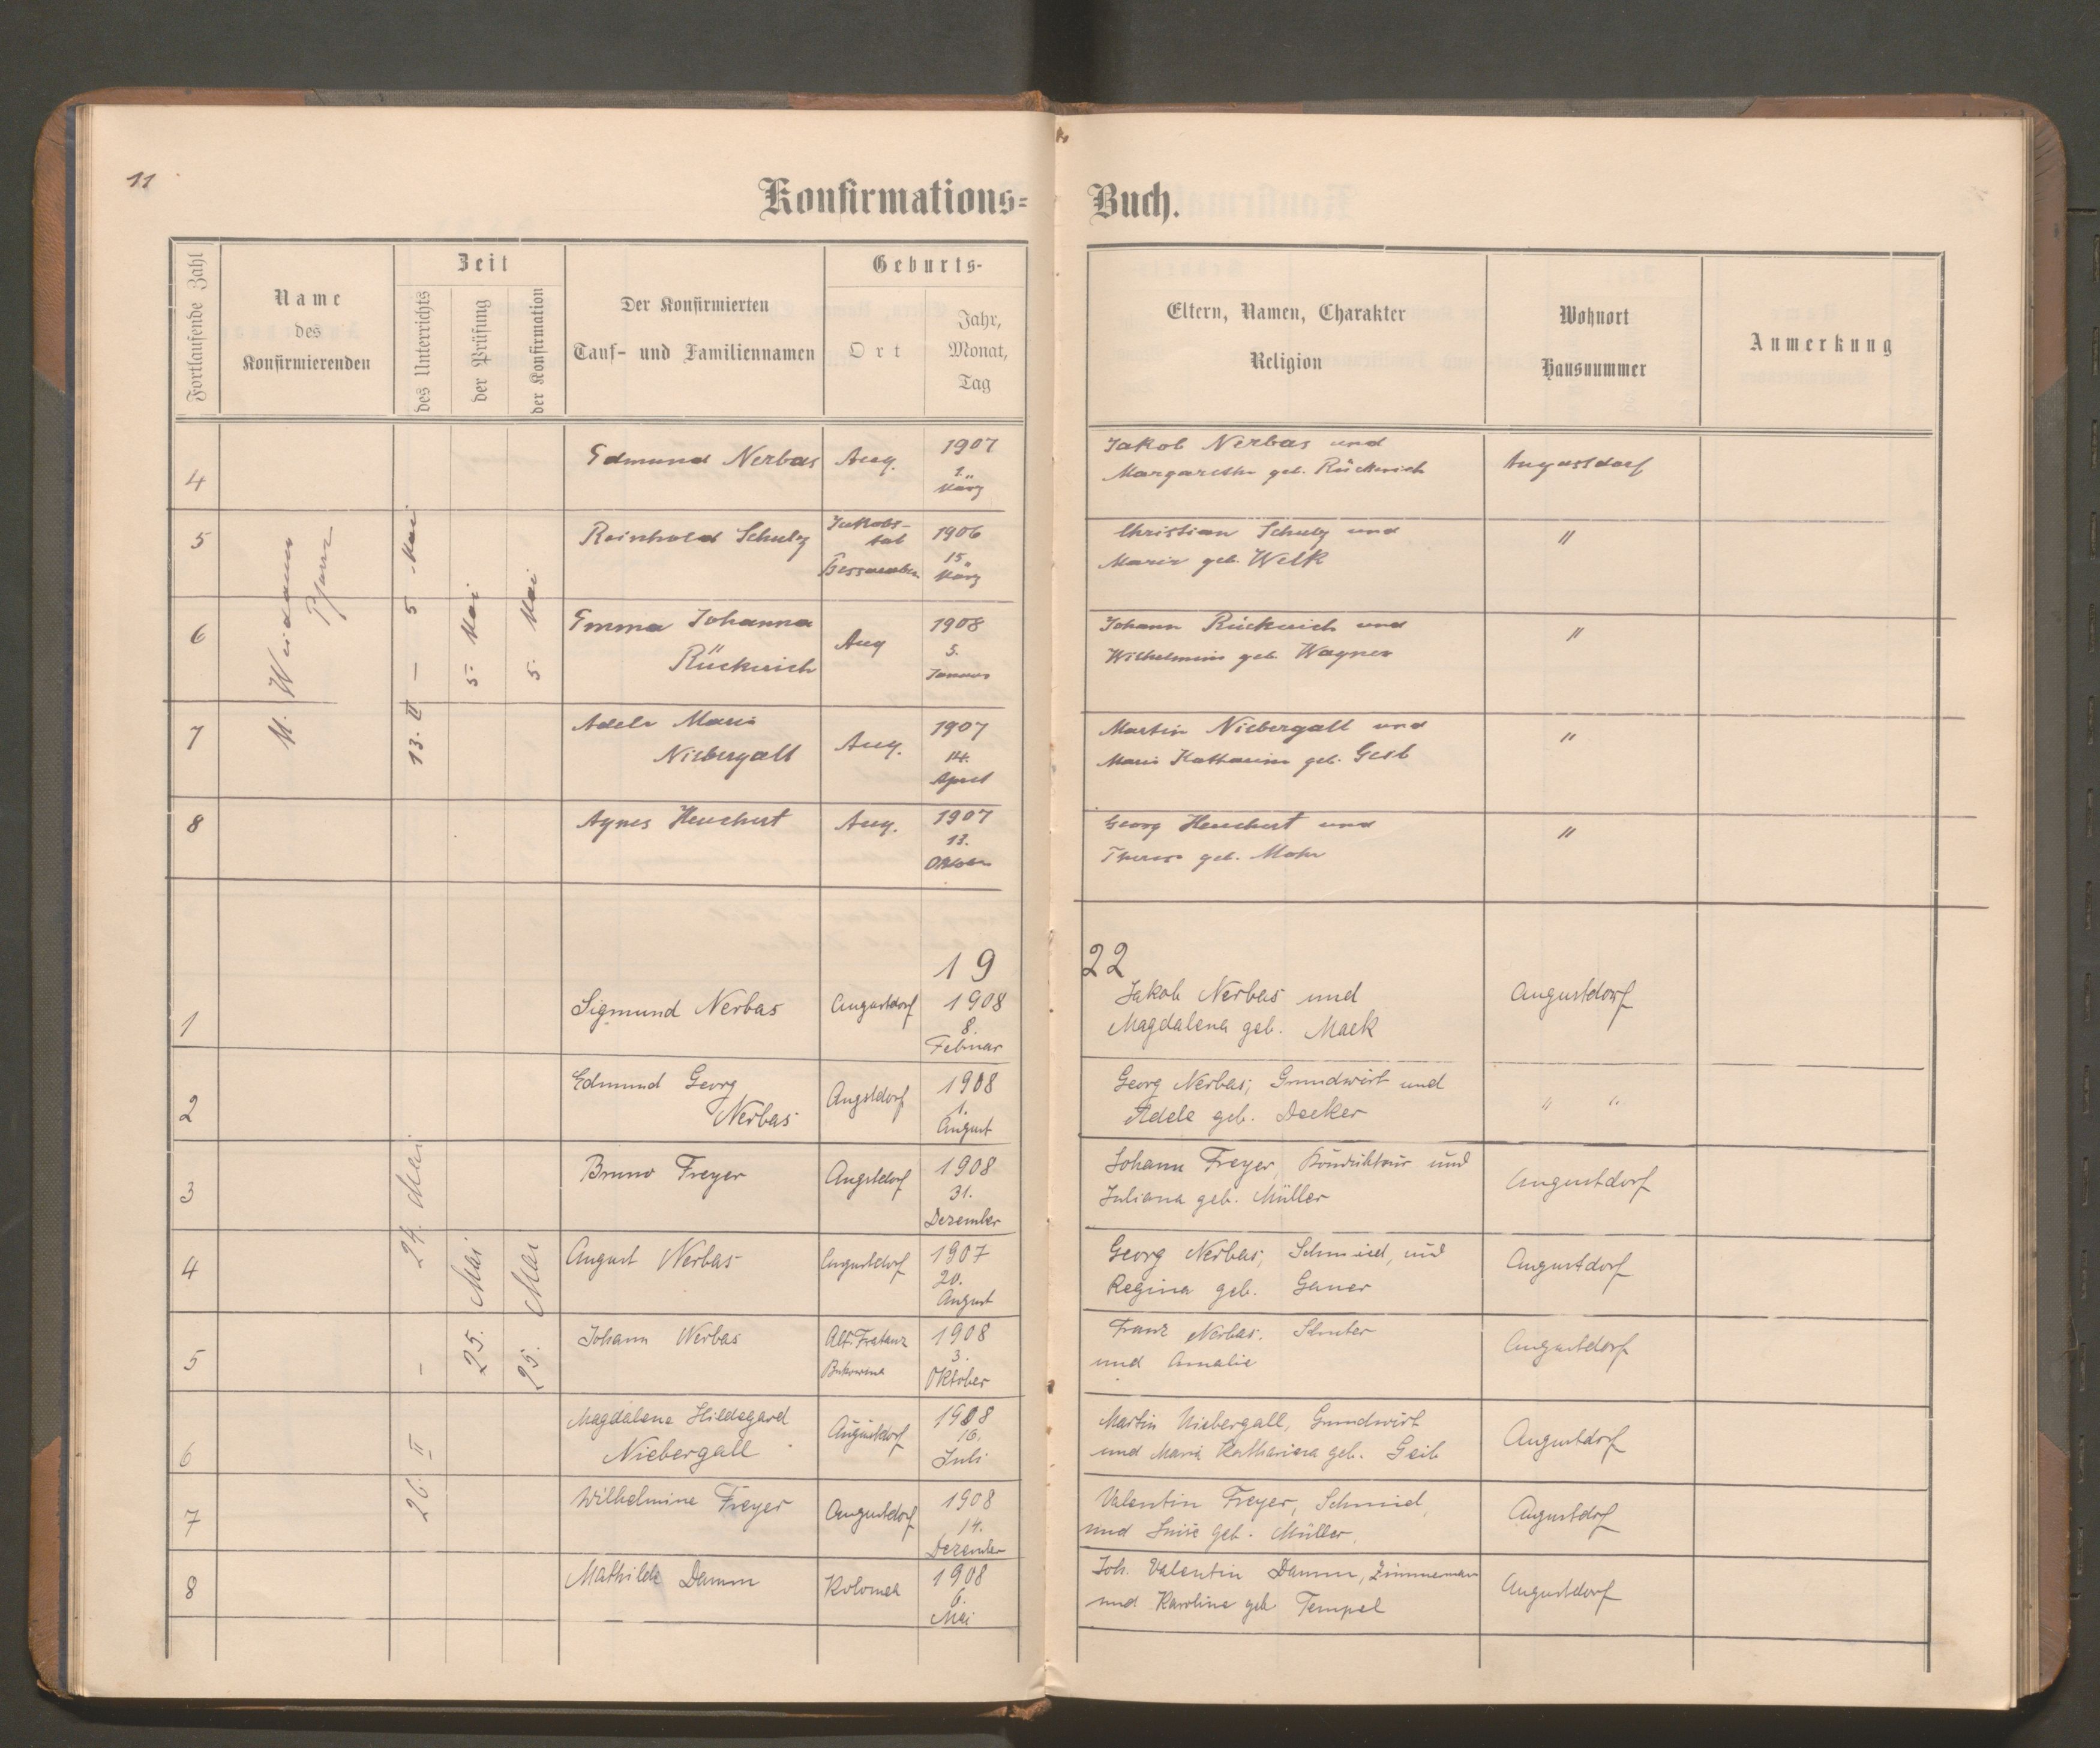 11
Konfirmations= Buch.
Fortlaufende Zahl
Name
des
Konfirmierenden
Zeit
des Unterrichts
der Prüfung
der Konfirmation
Der Konfirmierten
Tauf- und Familiennamen
Geburts-
Ort
Jahr,
Monat,
Tag
Eltern, Namen, Charakter
Religion
Wohnort
Hausnummer
Anmerkung
M. Weidauer
Pfarrer
13. II — 5 Mai
5. Mai
5. Mai
4 Edmund Nerbas Aug. 1907 Jakob Nerbas und Augustdorf
1. März Margarethe geb. Rückerich
5 Reinhold Schulz Jakobs- 1906 Christian Schulz und "
tal 15. Marie geb. Welk
Bessarabien März
6 Emma Johanna Aug 1908 Johann Rückerich und "
Rückerich 5. Januar Wilhelmine geb. Wagner
7 Adele Marie Aug. 1907 Martin Niebergall und "
Niebergall 14. April Marie Katharina geb. Geib
8 Agnes Heuchert Aug. 1907 Georg Heuchert und "
13. Oktober Therese geb. Mohr
19 22
26. II – 24. Mai
25. Mai
25. Mai
1 Sigmund Nerbas Augustdorf 1908 Jakob Nerbas und Augustdorf
8. Februar Magdalena geb. Mack
2 Edmund Georg Augstdorf 1908 Georg Nerbas, Grundwirt und " "
Nerbas 1. August Adele geb. Decker
3 Bruno Freyer Augstdorf 1908 Johann Freyer, Kondukteur und Augustdorf
31. Dezember Juliana geb. Müller
4 August Nerbas Augustdorf 1907 Georg Nerbas, Schmied, und Augustdorf
20. August Regina geb. Ganer
5 Johann Nerbas Alt-Fratauz 1908 Franz Nerbas, Augustdorf
Bukowina 3. Oktober und Amalie
6 Magdalena Hildegard Augustdorf 1908 Martin Niebergall, Grundwirt Augustdorf
Niebergall 16. Juli und Maria Katharina geb. Geib
7 Wilhelmine Freyer Augustdorf 1908 Valentin Freyer, Schmied, Augustdorf
14. Dezember und Luise geb. Müller
8 Mathilde Damm Kolomea 1908 Joh. Valentin Damm, Zimmerman Augustdorf
6. Mai und Karoline geb Tempel